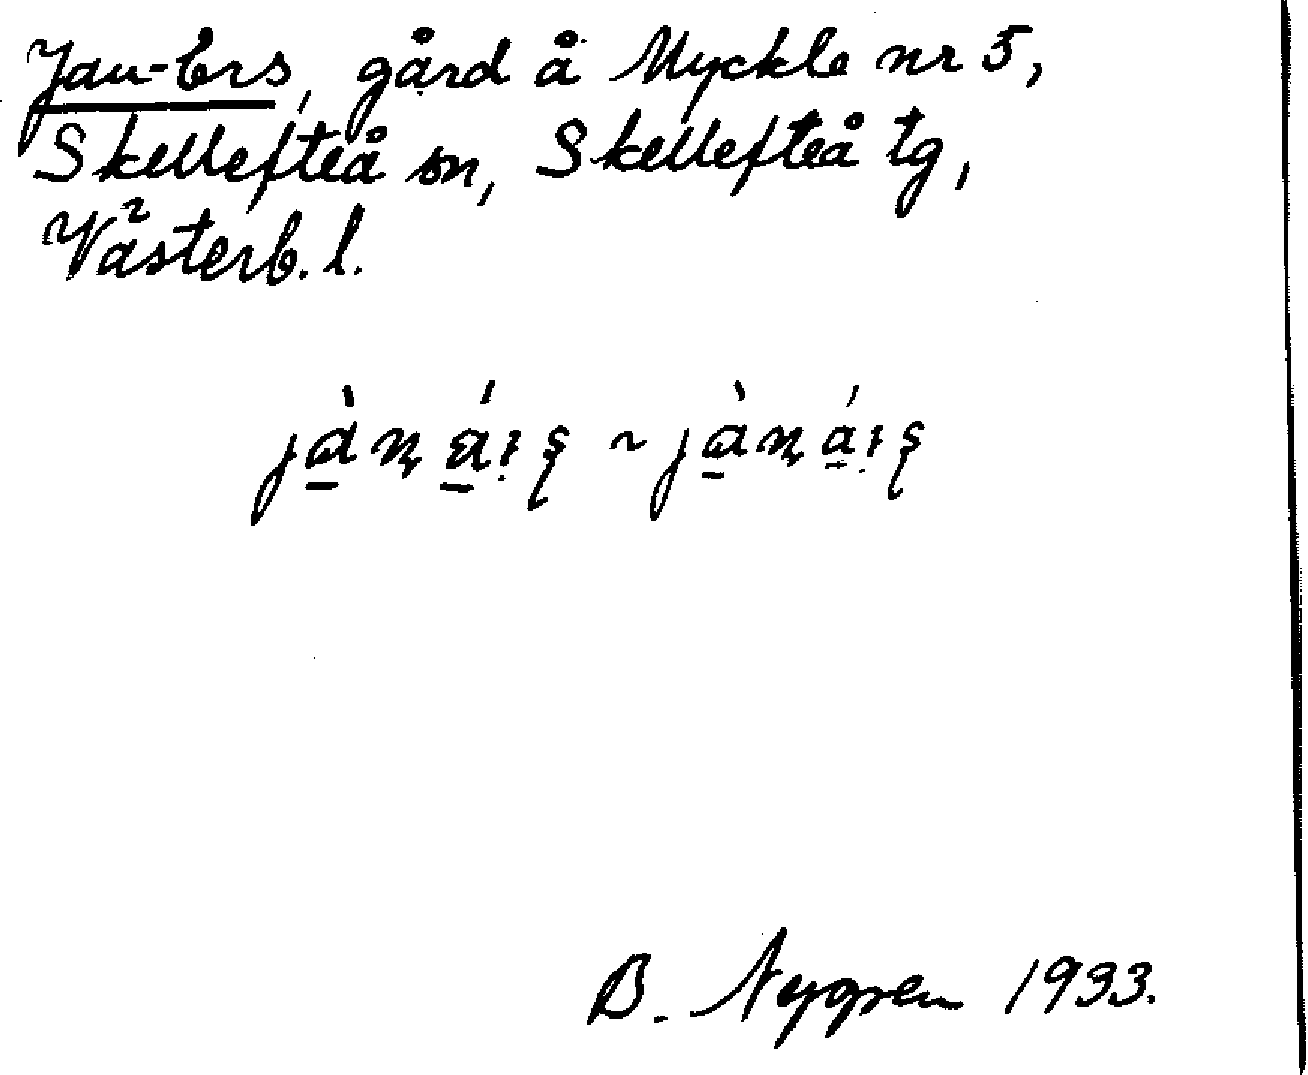 Jan-Ers, gård å Myckle nr 5,
Skellefteå sn, Skellefteå tg,
Västerb. l.
B. Nygren 1933.